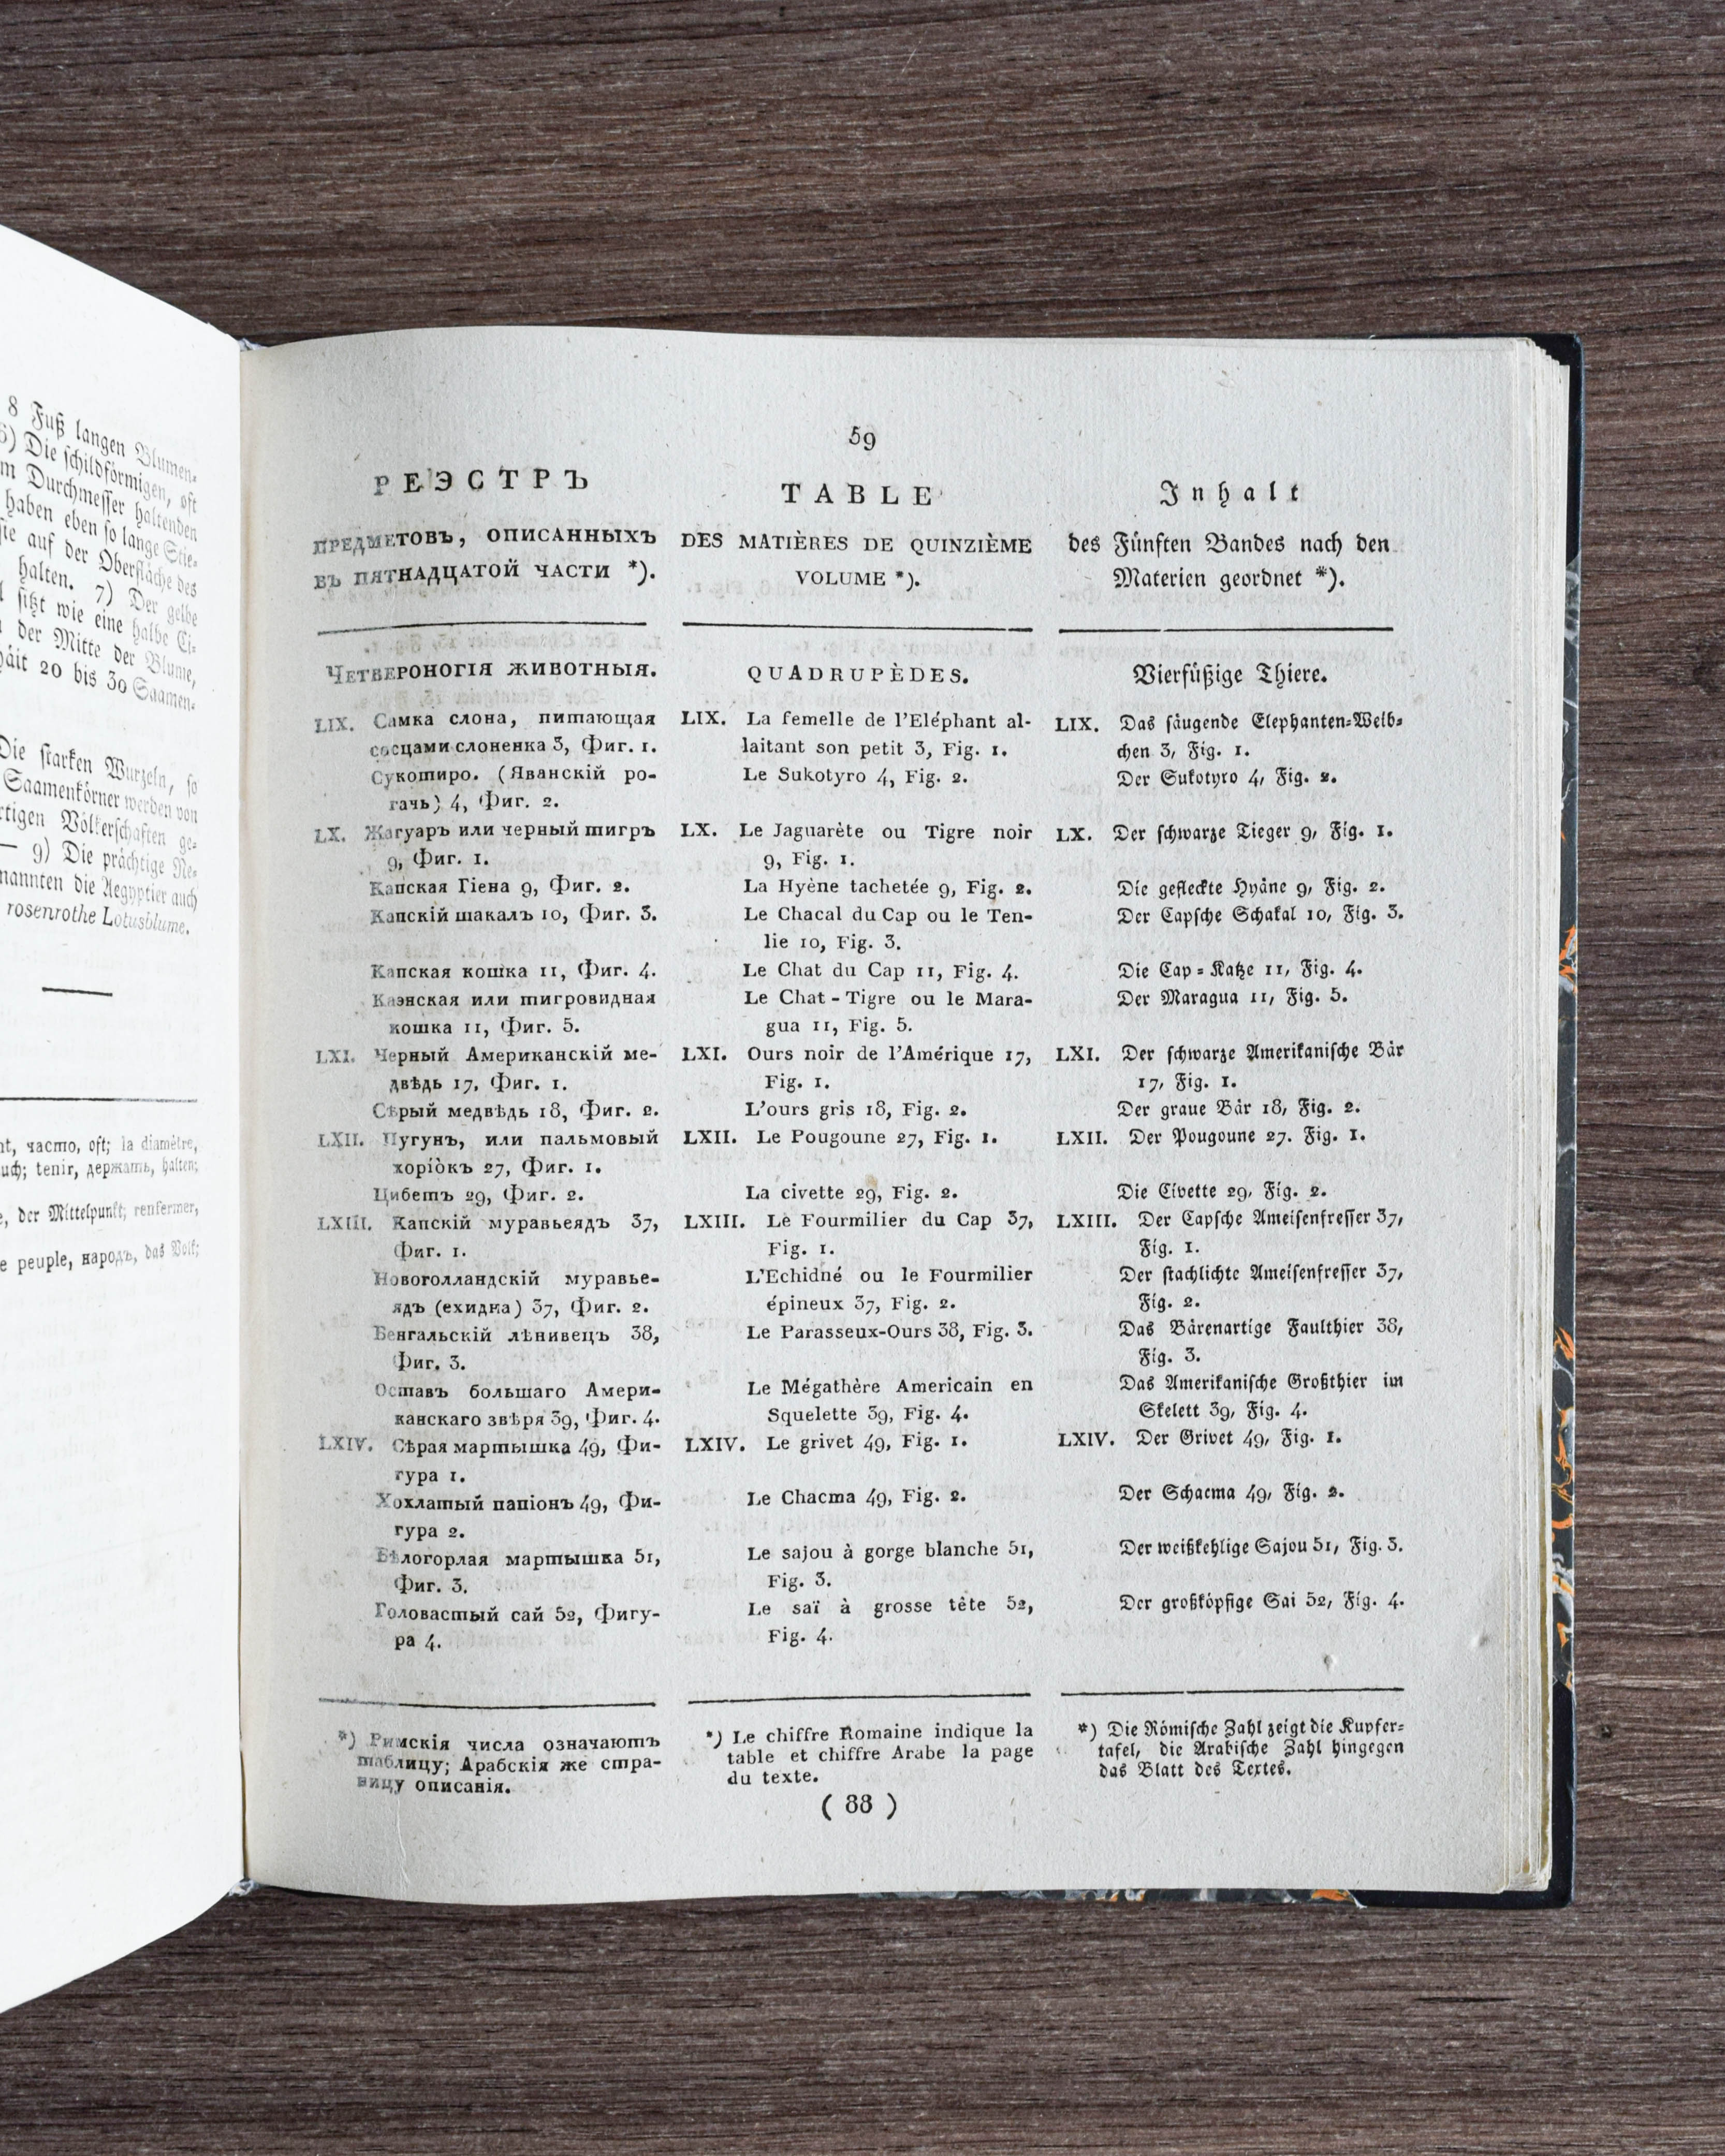 8 Fuß langen Blumen-
6) Die schildförmigen, oft
m Durchmesser haltenden
haben eben so lange Stie-
sie auf der Oberfläche des
halten. 7) Der gelbe
sitzt wie eine halbe Ci-
der Mitte der Blume,
20 bis 30 Saamen-
Die starken Wurzeln, so
Saamenkörner werden von
rtigen Völkerschaften ge-
— 9) Die prächtige Ne-
nannten die Aegyptier auch
rosenrothe Lotusblume.
nt, часто, oft; la diamètre,
uch; tenir, держать, halten;
e, der Mittelpunkt; renfermer,
e peuple, народъ, das Volk;
59
РЕЭСТРЪ
ПРЕДМЕТОВЪ, ОПИСАННЫХЪ
ВЪ ПЯТНАДЦАТОЙ ЧАСТИ *).
Четвероногія животныя.
LIX. Самка слона, питающая
сосцами слоненка 3, Фиг. 1.
Сукотиро. (Яванскій ро-
гачь) 4, Фиг. 2.
LX. Жагуаръ или черный тигръ
9, Фиг. 1.
Капская Гіена 9, Фиг. 2.
Капскій шакалъ 10, Фиг. 3.
Капская кошка 11, Фиг. 4.
Каэнская или тигровидная
кошка 11, Фиг. 5.
LXI. Черный Американскій ме-
двѣдь 17, Фиг. 1.
Сѣрый медвѣдь 18, Фиг. 2.
LXII. Пугунъ, или пальмовый
хоріокъ 27, Фиг. 1.
Цибетъ 29, Фиг. 2.
LXIII. Капскій муравьеядъ 37,
Фиг. 1.
Новоголландскій муравье-
ядъ (ехидна) 37, Фиг. 2.
Бенгальскій лѣнивецъ 38,
Фиг. 3.
Оставъ большаго Амери-
канскаго звѣря 39, Фиг. 4.
LXIV. Сѣрая мартышка 49, Фи-
гура 1.
Хохлатый папіонъ 49, Фи-
гура 2.
Бѣлогорлая мартышка 51,
Фиг. 3.
Головастый сай 52, Фигу-
ра 4.
*) Римскія числа означаютъ
таблицу; Арабскія же стра-
ницу описанія.
TABLE
DES MATIÈRES DE QUINZIÈME
VOLUME *).
QUADRUPÈDES.
LIX. La femelle de l'Eléphant al-
laitant son petit 3, Fig. 1.
Le Sukotyro 4, Fig. 2.
LX. Le Jaguarète ou Tigre noir
9, Fig. 1.
La Hyène tachetée 9, Fig. 2.
Le Chacal du Cap ou le Ten-
lie 10, Fig. 3.
Le Chat du Cap 11, Fig. 4.
Le Chat-Tigre ou le Mara-
gua 11, Fig. 5.
LXI. Ours noir de l'Amérique 17,
Fig. 1.
L'ours gris 18, Fig. 2.
LXII. Le Pougoune 27, Fig. 1.
La civette 29, Fig. 2.
LXIII. Le Fourmilier du Cap 37,
Fig. 1.
L'Echidné ou le Fourmilier
épineux 37, Fig. 2.
Le Parasseux-Ours 38, Fig. 3.
Le Mégathère Americain en
Squelette 39, Fig. 4.
LXIV. Le grivet 49, Fig. 1.
Le Chacma 49, Fig. 2.
Le sajou à gorge blanche 51,
Fig. 3.
Le saï à grosse tête 52,
Fig. 4.
*) Le chiffre Romaine indique la
table et chiffre Arabe la page
du texte.
Inhalt
des Fünften Bandes nach den
Materien geordnet *).
Vierfüßige Thiere.
LIX. Das säugende Elephanten-Weib-
chen 3, Fig. 1.
Der Sukotyro 4, Fig. 2.
LX. Der schwarze Tieger 9, Fig. 1.
Die gefleckte Hyäne 9, Fig. 2.
Der Capsche Schakal 10, Fig. 3.
Die Cap-Katze 11, Fig. 4.
Der Maragua 11, Fig. 5.
LXI. Der schwarze Amerikanische Bär
17, Fig. 1.
Der graue Bär 18, Fig. 2.
LXII. Der Pougoune 27. Fig. 1.
Die Civette 29, Fig. 2.
LXIII. Der Capsche Ameisenfresser 37,
Fig. 1.
Der stachlichte Ameisenfresser 37,
Fig. 2.
Das Bärenartige Faulthier 38,
Fig. 3.
Das Amerikanische Großthier im
Skelett 39, Fig. 4.
LXIV. Der Grivet 49, Fig. 1.
Der Schacma 49, Fig. 2.
Der weißkehlige Sajou 51, Fig. 3.
Der großköpfige Sai 52, Fig. 4.
*) Die Römische Zahl zeigt die Kupfer-
tafel, die Arabische Zahl hingegen
das Blatt des Textes.
( 88 )